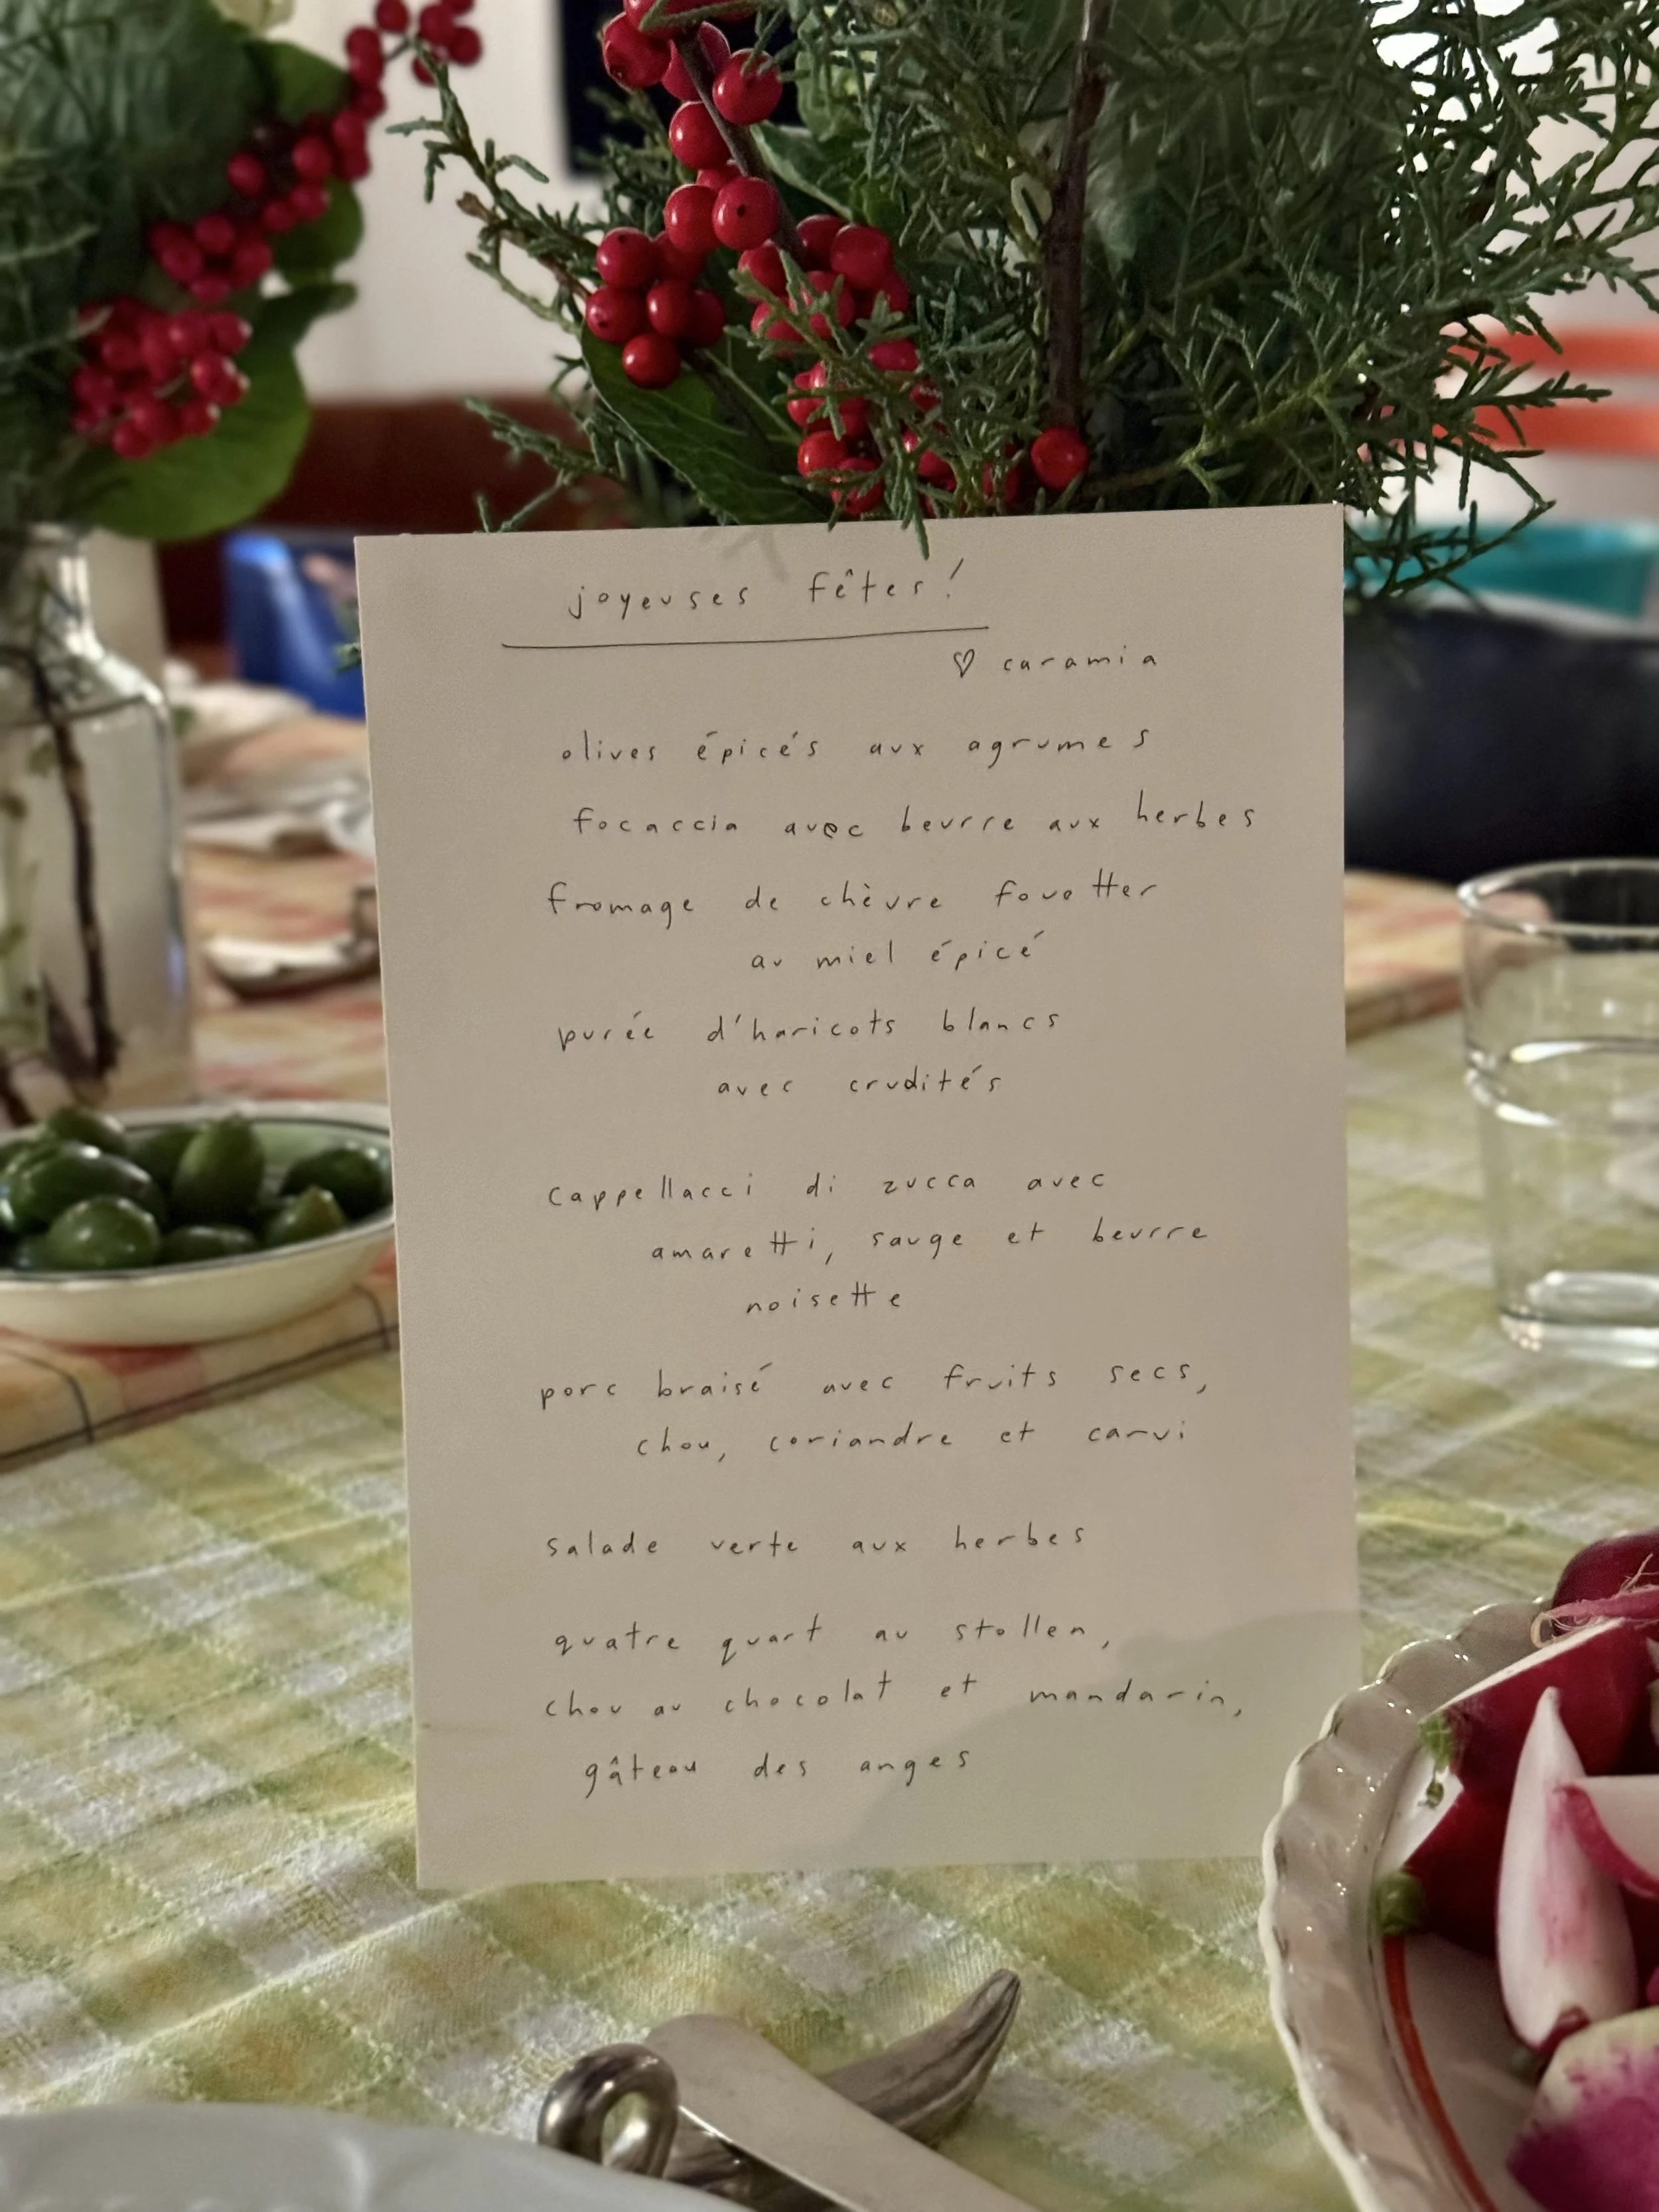 joyeuses fêtes!
♡ caramia
olives épicés aux agrumes
focaccia avec beurre aux herbes
fromage de chèvre fouetter
au miel épicé
purée d'haricots blancs
avec crudités
cappellacci di zucca avec
amaretti, sauge et beurre
noisette
porc braisé avec fruits secs,
chou, coriandre et carvi
salade verte aux herbes
quatre quart au stollen,
chou au chocolat et mandarin,
gâteau des anges